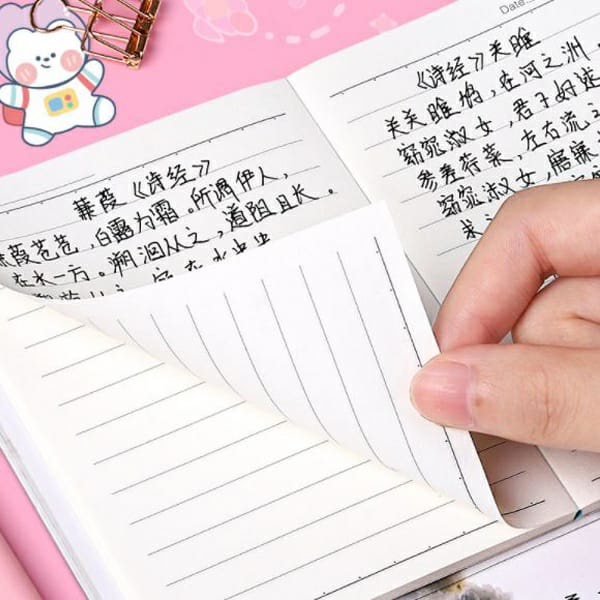 蒹葭《诗经》
葭苍苍，白露为霜。所谓伊人，
在水一方。溯洄从之，道阻且长。
Date
《诗经》关雎
关关雎鸠，在河之洲，
窈窕淑女，君子好逑
参差荇菜，左右流之
窈窕淑女，寤寐
求之